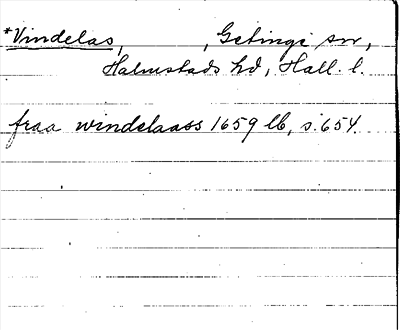 *Vindelas, , Getinge sn,
Halmstads hd, Hall. l.
fraa windelaass 1659 lb, s. 654.